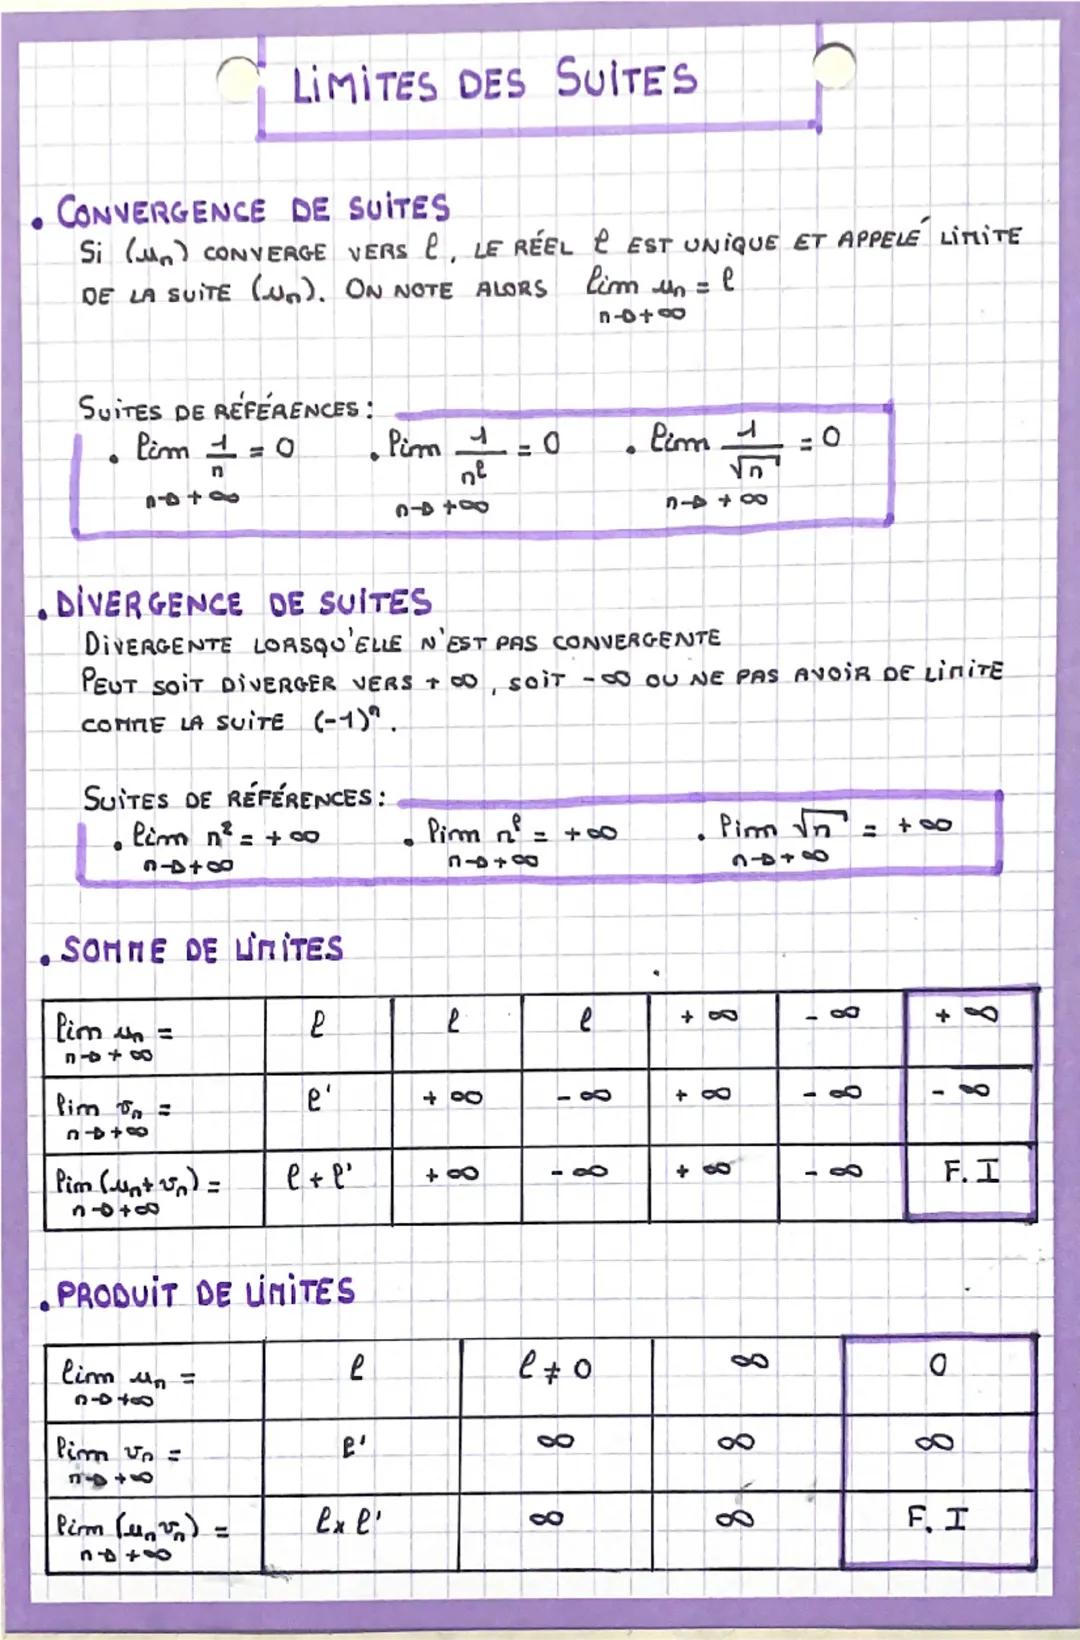 LIMITES DES SUITES
• CONVERGENCE DE SUITES
Si (un) CONVERGE VERS ℓ, LE RÉEL ℓ EST UNIQUE ET APPELÉ LIMITE
DE LA SUITE (un). ON NOTE ALORS lim un = ℓ
n→+∞
SUITES DE RÉFÉRENCES :
• lim 1/n = 0 • lim 1/nˡ = 0 • lim 1/√n = 0
n→+∞ n→+∞ n→+∞
• DIVERGENCE DE SUITES
DIVERGENTE LORSQU'ELLE N'EST PAS CONVERGENTE
PEUT SOIT DIVERGER VERS +∞, SOIT -∞ OU NE PAS AVOIR DE LIMITE
COMME LA SUITE (-1)ⁿ.
SUITES DE RÉFÉRENCES :
• lim n² = +∞ • lim nˡ = +∞ • lim √n = +∞
n→+∞ n→+∞ n→+∞
• SOMME DE LIMITES
lim un = ℓ ℓ ℓ +∞ -∞ +∞
n→+∞
lim vn = ℓ' +∞ -∞ +∞ -∞ -∞
n→+∞
lim (un+vn) = ℓ+ℓ' +∞ -∞ +∞ -∞ F.I
n→+∞
• PRODUIT DE LIMITES
lim un = ℓ ℓ≠0 ∞ 0
n→+∞
lim vn = ℓ' ∞ ∞ ∞
n→+∞
lim (unvn) = ℓ×ℓ' ∞ ∞ F.I
n→+∞